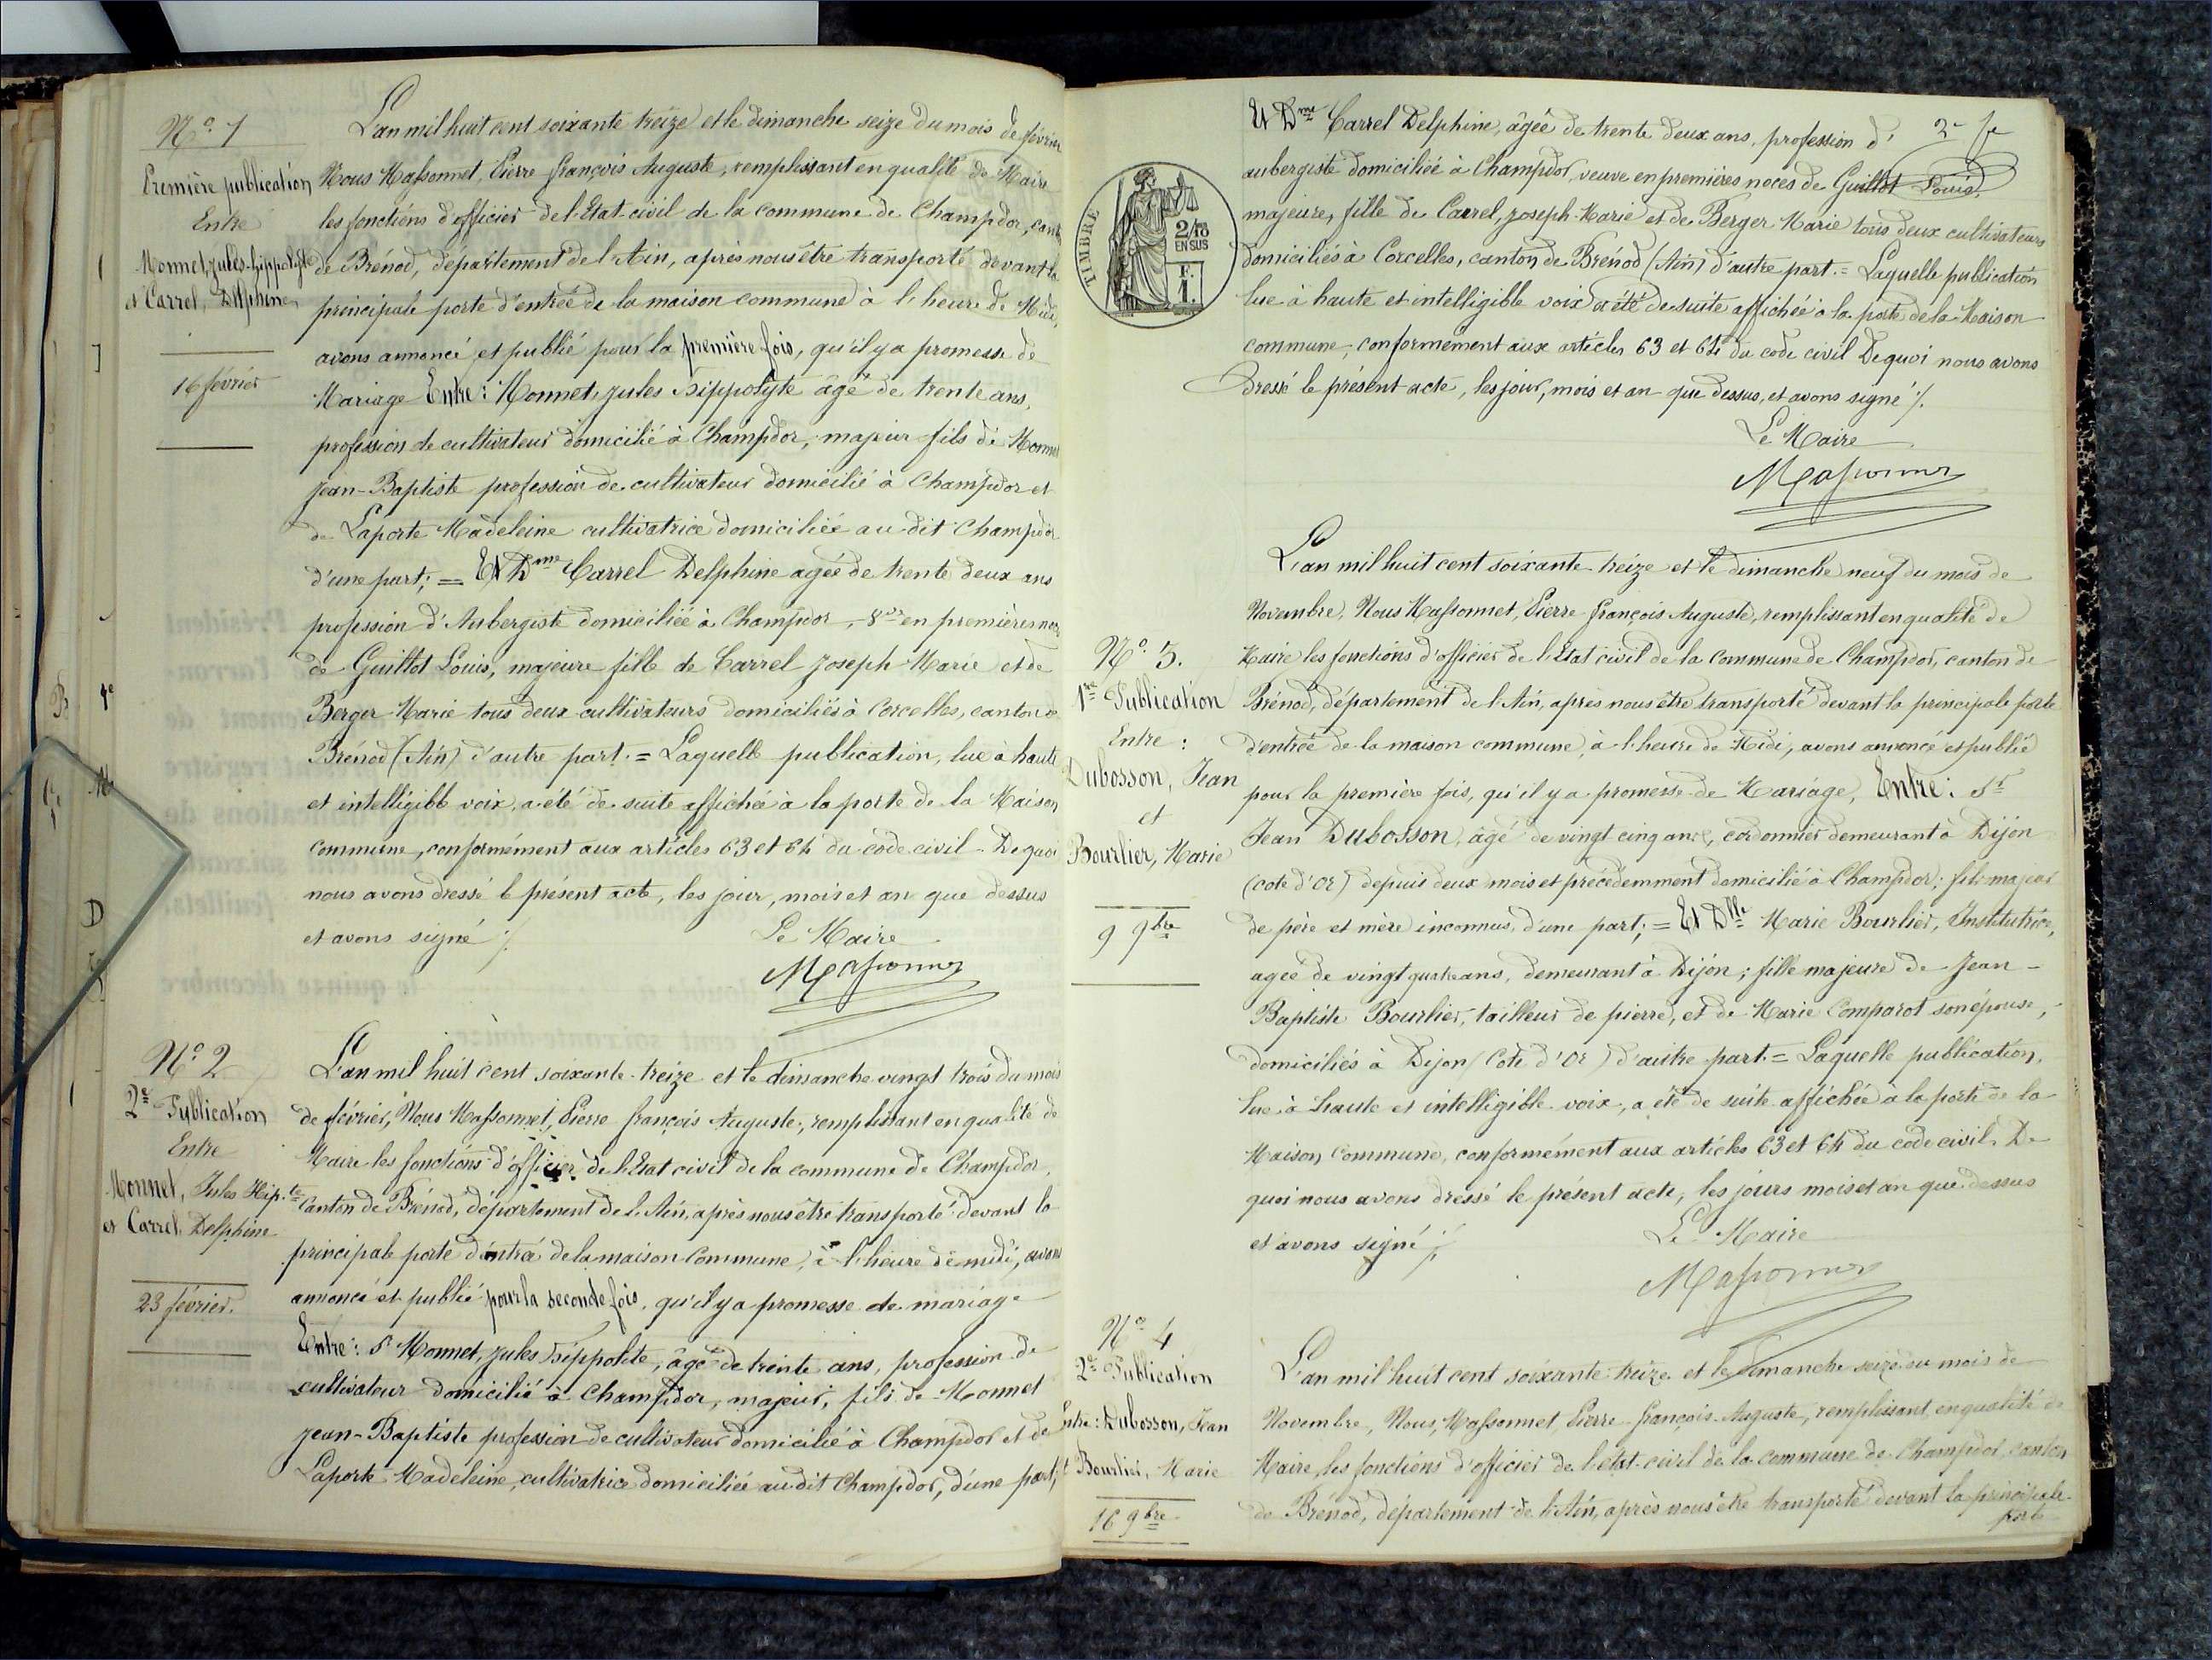 N° 1
Première publication
Entre
Monnet, Jules-hippolyte
et Carrel, Delphine
16 février
L'an mil huit cent soixante treize et le dimanche seize du mois de février
Nous Massonnet, Pierre françois Auguste, remplissant en qualité de Maire
les fonctions d'officier de l'Etat-civil de la commune de Champdor, canton
de Brénod, département de l'Ain, après nous être transporté devant la
principale porte d'entrée de la maison commune à l'heure de Midi,
avons annoncé et publié pour la première fois, qu'il y a promesse de
Mariage Entre: Monnet, Jules hippolyte âgé de trente ans,
profession de cultivateur domicilié à Champdor, majeur fils de Monnet
Jean-Baptiste profession de cultivateur domicilié à Champdor et
de Laporte Madeleine cultivatrice domiciliée au dit Champdor
d'une part; = Et Dme Carrel Delphine agée de trente deux ans
profession d'Aubergiste domiciliée à Champdor, en premières noces
de Guillot Louis, majeure fille de Carrel Joseph Marie et de
Berger Marie tous deux cultivateurs domiciliés à Corcelles, canton de
Brénod (Ain) d'autre part. = Laquelle publication, lue à haute
et intelligible voix, a été de suite affichée à la porte de la Maison
commune, conformément aux articles 63 et 64 du code civil - De quoi
nous avons dressé le présent acte, les jour, mois et an que dessus
et avons signé ./.
Le Maire
Massonnet
N° 2
2e Publication
Entre
Monnet, Jules Hip.te
et Carrel, Delphine
23 février.
L'an mil huit cent soixante-treize et le dimanche vingt trois du mois
de février, Nous Massonnet, Pierre françois Auguste, remplissant en qualité de
Maire les fonctions d'officier de l'Etat civil de la commune de Champdor,
Canton de Brénod, département de l'Ain, après nous être transporté devant la
principale porte d'entrée de la maison Commune, à l'heure de midi, avons
annoncé et publié pour la seconde fois, qu'il y a promesse de mariage
Entre: Sr Monnet, Jules hippolite, âgé de trente ans, profession de
cultivateur domicilié à Champdor, majeur, fils de Monnet
Jean-Baptiste profession de cultivateur domicilié à Champdor et de
Laporte Madeleine, cultivatrice domiciliée au dit Champdor, d'une part;
2e fe
TIMBRE
2/10
EN SUS
F.
1.
Et Dme Carrel Delphine, âgée de trente deux ans, profession d'
aubergiste domiciliée à Champdor, veuve en premières noces de Guillot Louis
majeure, fille de Carrel, Joseph-Marie et de Berger Marie tous deux cultivateurs
domiciliés à Corcelles, canton de Brénod (Ain) d'autre part. = Laquelle publication
lue à haute et intelligible voix a été de suite affichée à la porte de la Maison
commune, conformément aux articles 63 et 64 du code civil De quoi nous avons
dressé le présent acte, les jour, mois et an que dessus, et avons signé ./.
Le Maire
Massonnet
N° 3.
1re Publication
Entre:
Dubosson, Jean
et
Bourlier, Marie
9 9bre
L'an mil huit cent soixante-treize et le dimanche neuf du mois de
Novembre, Nous Massonnet, Pierre-françois Auguste, remplissant en qualité de
Maire les fonctions d'officier de l'Etat civil de la commune de Champdor, canton de
Brénod, département de l'Ain, après nous être transporté devant la principale porte
d'entrée de la maison commune, à l'heure de Midi, avons annoncé et publié
pour la première fois, qu'il y a promesse de Mariage, Entre: Sr
Jean Dubosson, âgé de vingt cinq ans, cordonnier demeurant à Dijon
(cote d'Or) depuis deux mois et précédemment domicilié à Champdor; fils majeur
de père et mère inconnus, d'une part; = Et Dlle Marie Bourlier, Institutrice,
agée de vingt quatre ans, demeurant à Dijon; fille majeure de Jean-
Baptiste Bourlier, tailleur de pierre, et de Marie Comparot son épouse,
domiciliés à Dijon (Cote d'Or) d'autre part. = Laquelle publication,
lue à haute et intelligible voix, a été de suite affichée à la porte de la
Maison Commune, conformément aux articles 63 et 64 du code civil. De
quoi nous avons dressé le présent acte, les jours mois et an que dessus
et avons signé ./.
Le Maire
Massonnet
N° 4
2e Publication
Entre: Dubosson, Jean
et Bourlier, Marie
16 9bre
L'an mil huit cent soixante treize et le dimanche seize du mois de
Novembre, Nous, Massonnet Pierre-françois-Auguste, remplissant en qualité de
Maire, les fonctions d'officier de l'état-civil de la commune de Champdor, canton
de Brénod, département de l'Ain, après nous être transporté devant la principale
porte